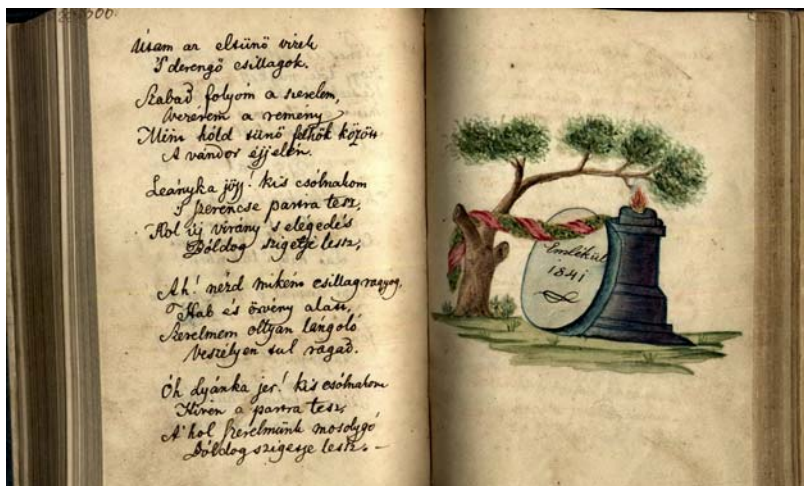 Utam az eltünö vizek
'S derengő csillagok.
Szabad folyóm a szerelem,
Vezérem a remény
Mint hóld tünő felhők között
A vándor éjjelén.
Leányka jöjj! kis csólnakom
'S szerencse partra tesz,
Hol új virány 's elégedés
Bóldog szigetje lesz,
Ah! nézd miként csillag ragyog,
Hab és örvény alatt,
Szerelmem ollyan lángoló
Veszélyen tul ragad.
Óh Lyánka jer! kis csólnakom
Hiven a partra tesz,
A' hol szerelmünk mosolygó
Bóldog szigetje lesz. –
Emlékül
1841